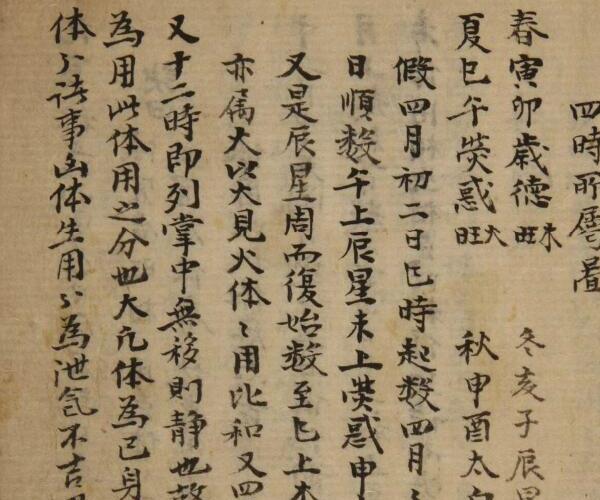 四時所屬
春寅卯歲德木旺 冬亥子辰星
夏巳午熒惑火旺 秋申酉太
假四月初二日巳時起数四月
日順数午上辰星未上熒惑申
又是辰星周而復始数至巳上
亦属火以火見火体〻用比和又四
又十二時即列掌中無移則静也故
為用此体用之分也大凢体為己身
体〻諸事凶体生用〻為泄氣不吉